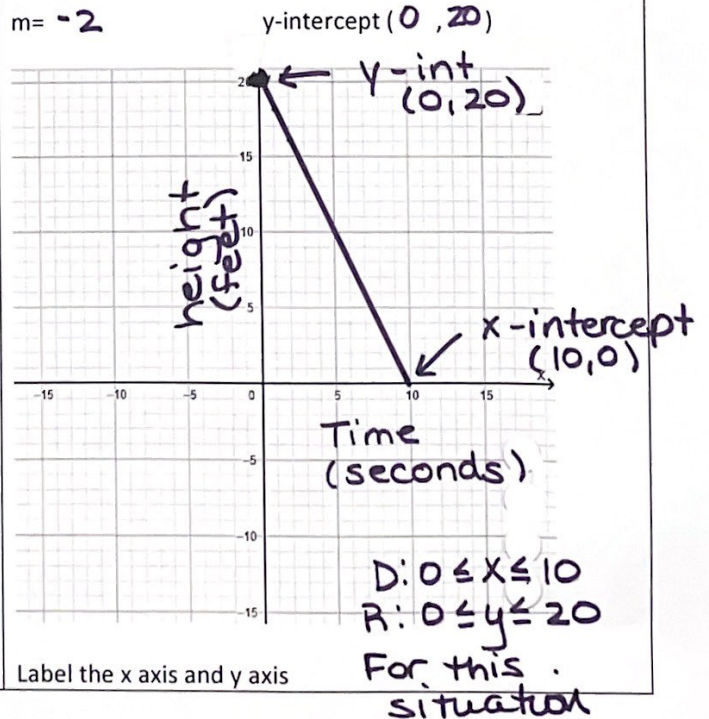 m= -2 y-intercept (0 , 20)
20
y-int
(0,20)
15
height
(feet)
10
5
x-intercept
(10,0)
x
-15 -10 -5 0 5 10 15
Time
(seconds)
-5
-10
D: 0 ≤ x ≤ 10
R: 0 ≤ y ≤ 20
-15
For this
situation
Label the x axis and y axis